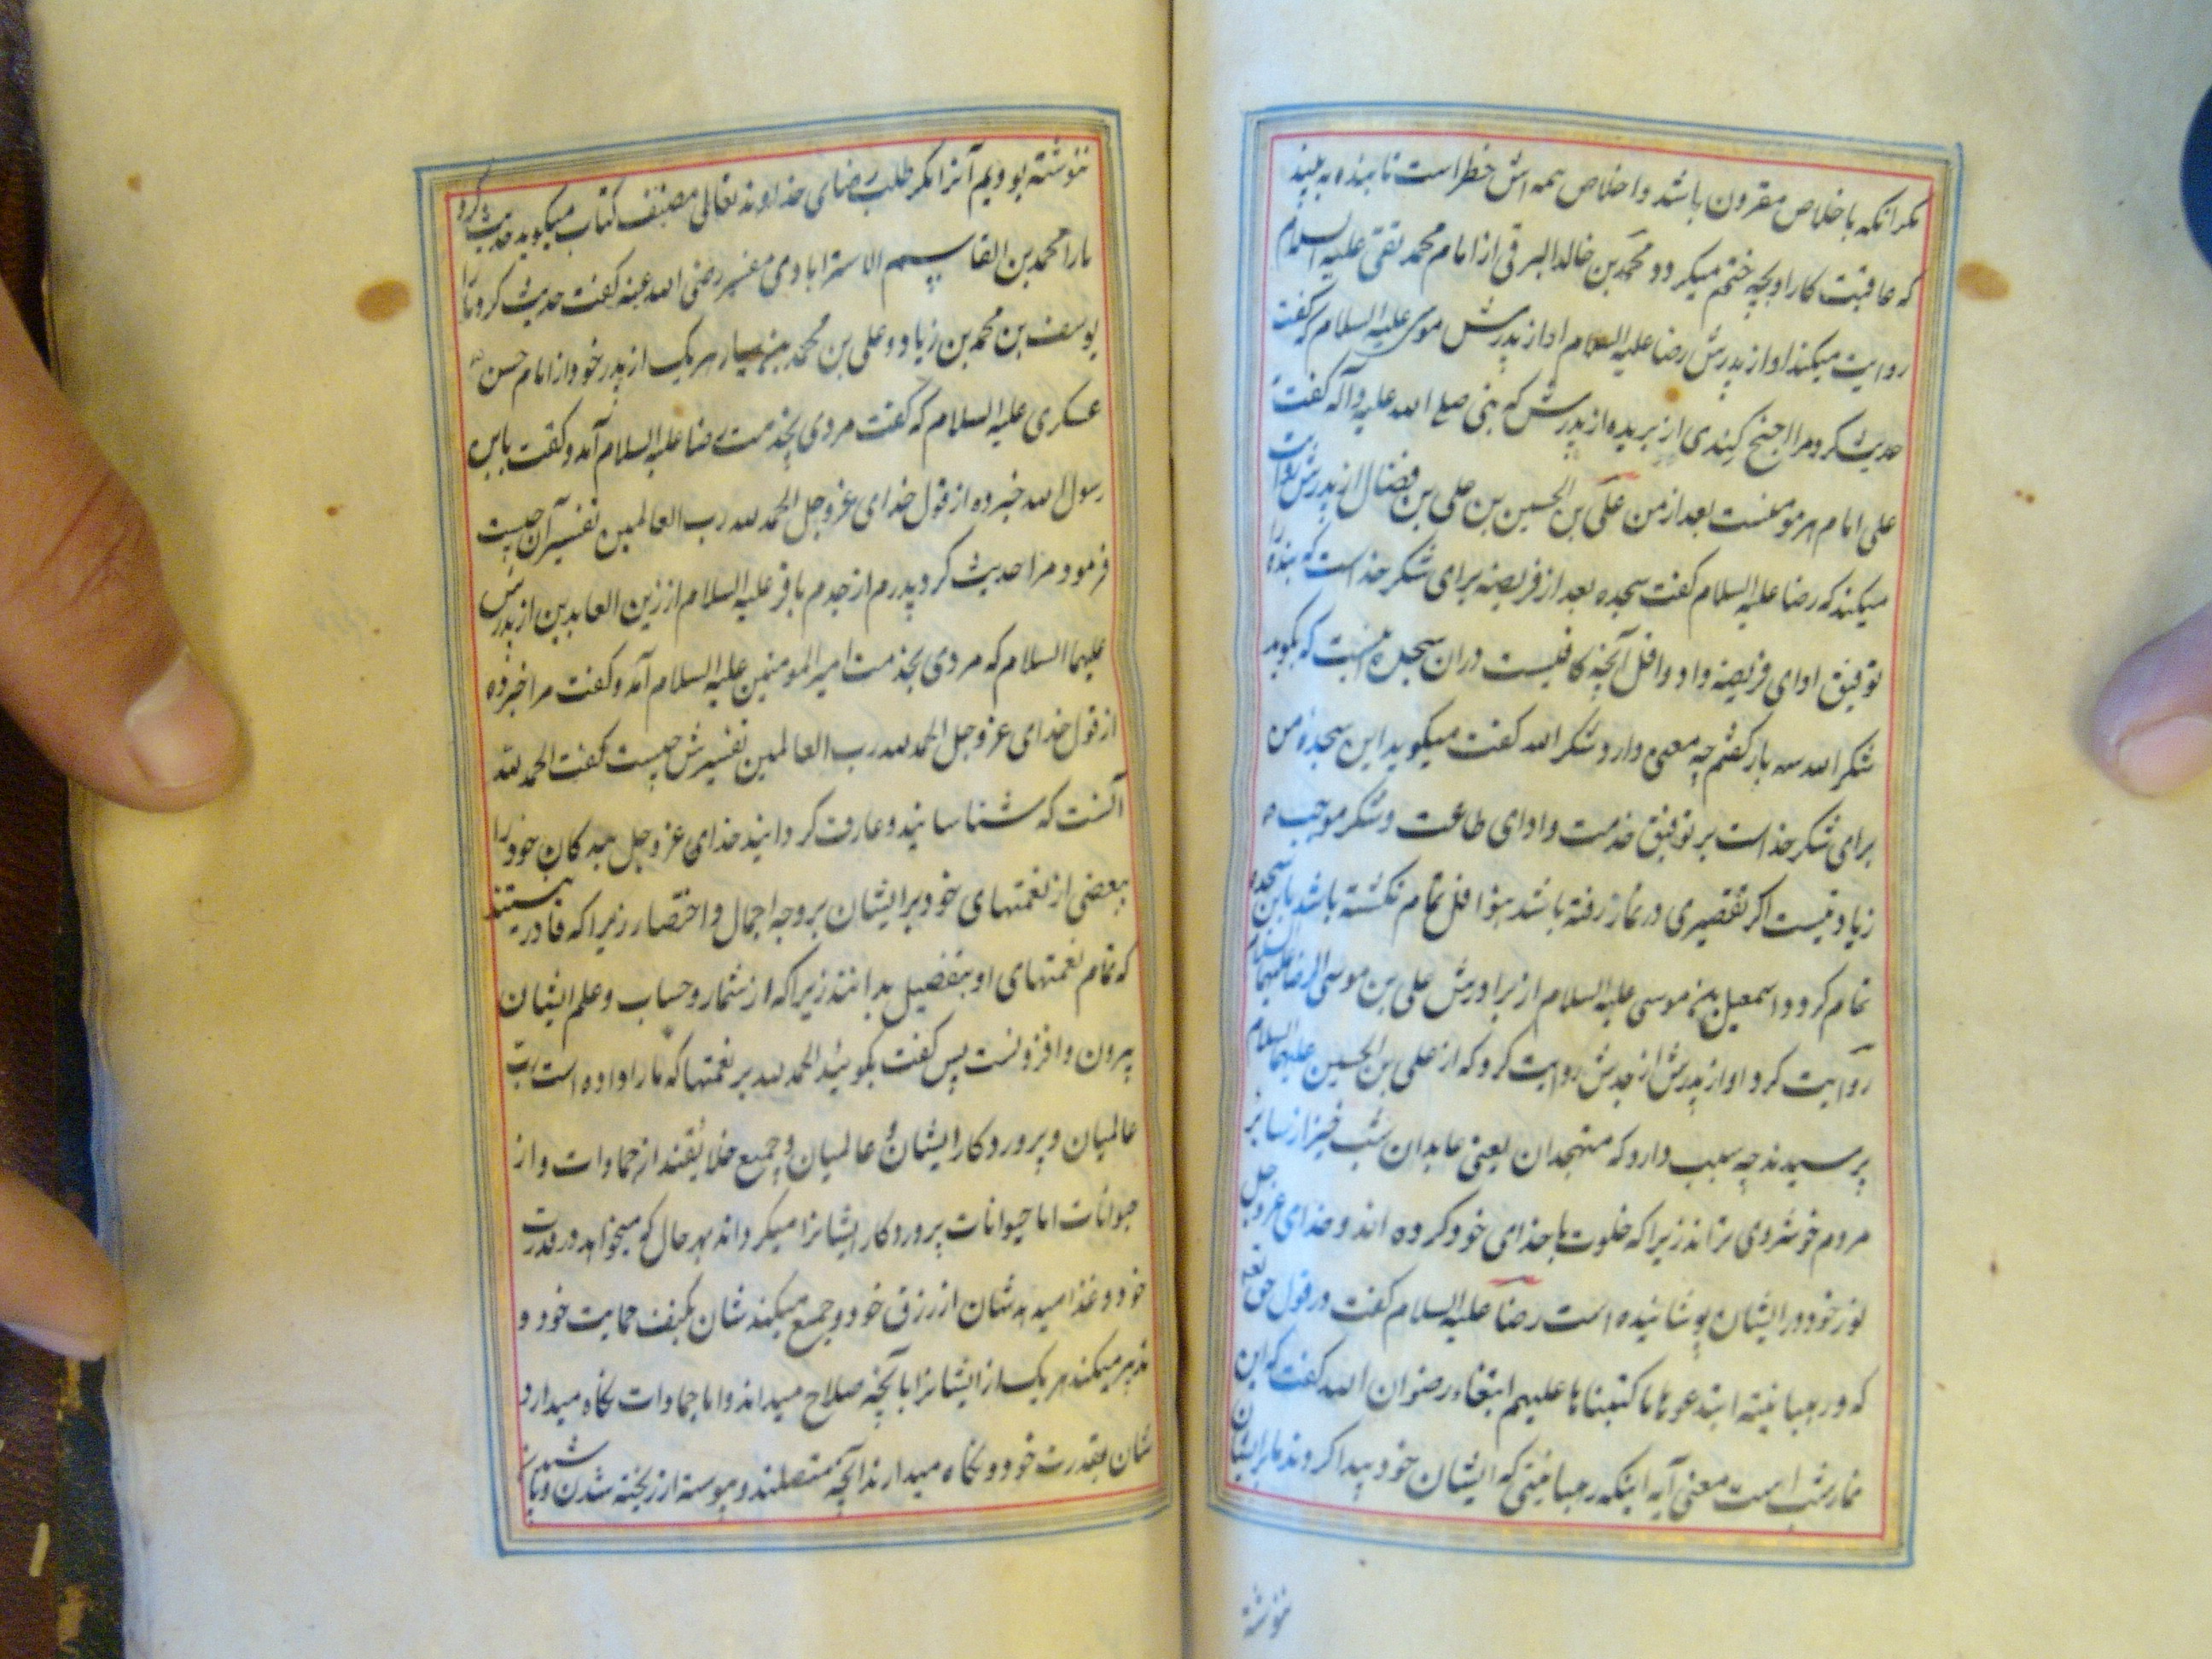 مکر انکه باخلاص مقرون باشد واخلاص همه اش خطر است تا بنده به بیند
که عاقبت کار او بچه ختم میکردد و محمد بن خالد البرقی از امام محمد تقی علیه السلام
روایت میکند او از پدرش رضا علیه السلام او از پدرش موسی علیه السلام که گفت
حدیث کرد مرا اجلح کیندی از بریده از پدرش که نبی صلی الله علیه وآله گفت
علی امام هر مومنست بعد از من علی بن الحسین بن علی بن فضال از پدرش روایت
میکند که رضا علیه السلام کفت سجده بعد از فریضه برای شکر خداست که بنده را
توفیق ادای فریضه داد و اقل آنچه کافیست دران سجده اینست که بکوید
شکرا لله سه بار کفتم چه معنی دارد شکرا لله کفت میکوید این سجده من
برای شکر خداست بر توفیق خدمت و ادای طاعت و شکر موجب
زیادتیست اکر تقصیری در نماز رفته باشد بنوافل تمام نکشته باشد باین سجده
تمام کردد اسمعیل بن موسی علیه السلام از برادرش علی بن موسی الرضا علیهما السلام
روایت کرد او از پدرش از جدش روایت کرد که از علی بن الحسین علیهما السلام
پرسیدند چه سبب دارد که متهجدان یعنی عابدان شب خیز از سایر
مردم خوشروی ترانند زیرا که خلوت با خدای خود کرده اند و خدای عز وجل
نور خود در ایشان پوشانیده است رضا علیه السلام کفت در قول حق تعه
که ورهبانیته ابتدعوها ما کتبناها علیهم ابتغاء رضوان الله کفت که این
نماز شب است معنی آیه اینکه رهبانیتی که ایشان خود پیدا کردند ما بر ایشان
ننوشته
ننوشته بودیم آنرا مکر طلب رضای خداوند تعالی مصنف کتاب میکوید حدیث کرد
مارا محمد بن القاسم الاسترابادی مفسر رضی الله عنه کفت حدیث کرد مارا
یوسف بن محمد بن زیاد و علی بن محمد بن سیار هر یک از پدر خود از امام حسن
عسکری علیه السلام که کفت مردی بخدمت رضا علیه السلام آمد و کفت یابن
رسول الله خبر ده از قول خدای عز وجل الحمد لله رب العالمین تفسیر آن چیست
فرمود مرا حدیث کرد پدرم از جدم باقر علیه السلام از زین العابدین از پدرش
علیهما السلام که مردی بخدمت امیر المومنین علیه السلام آمد و کفت مرا خبر ده
از قول خدای عز وجل الحمد لله رب العالمین تفسیرش چیست کفت الحمد لله
آنست که شناسانید و عارف کردانید خدای عز وجل بندکان خود را
ببعضی از نعمتهای خود بر ایشان بر وجه اجمال و اختصار زیرا که قادر نیستند
که تمام نعمتهای او بتفضیل بدانند زیرا که از شمار و حساب و علم ایشان
بیرون و افزونست پس کفت بکوئید الحمد لله بر نعمتها که مارا داده است رب
عالمیان و پروردکار ایشان و عالمیان و جمیع خلایقند از جمادات و از
حیوانات اما حیوانات پروردکار ایشانرا میکرداند بهر حال که میخواهد در قدرت
خود و غذا میدهدشان از رزق خود و جمع میکندشان بکنف حمایت خود و
تدبیر میکند هر یک از ایشانرا بآنچه صلاح میداند و اما جمادات نکاه میدارد
شان بقدرت خود و نکاه میدارد آنچه متصلند و پیوسته از ریخته شدن و پاشیدن